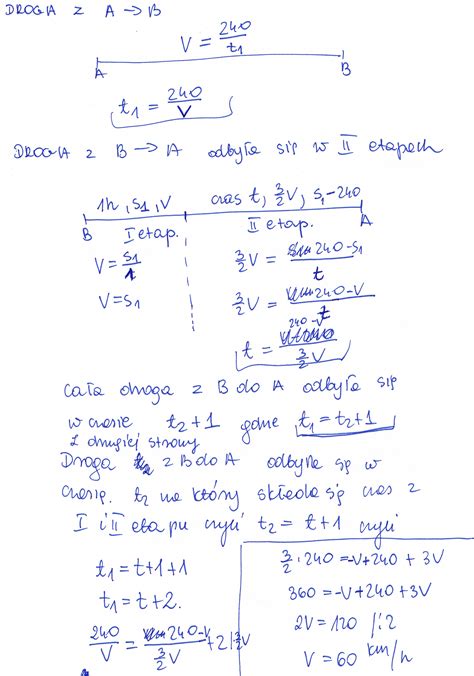 DROGA z A → B
V = 240/t₁
A B
t₁ = 240/V
DROGA z B → A odbyła się w II etapach
1h, s₁, V czas t, 3/2 V, s₁-240
B I etap. II etap. A
V = s₁/1 3/2 V = 240-s₁/t
V = s₁ 3/2 V = 240-V/t
t = 240-V / 3/2 V
cała droga z B do A odbyła się
w czasie t₂+1 gdzie t₁ = t₂+1
z drugiej strony
Droga z B do A odbyła się w
czasie. t₂ na który składa się czas z
I i II etapu czyli t₂ = t+1 czyli
t₁ = t+1+1
t₁ = t+2.
240/V = 240-V / 3/2 V + 2 |·3/2 V
3/2 · 240 = -V+240 + 3V
360 = -V+240+3V
2V = 120 /:2
V = 60 km/h